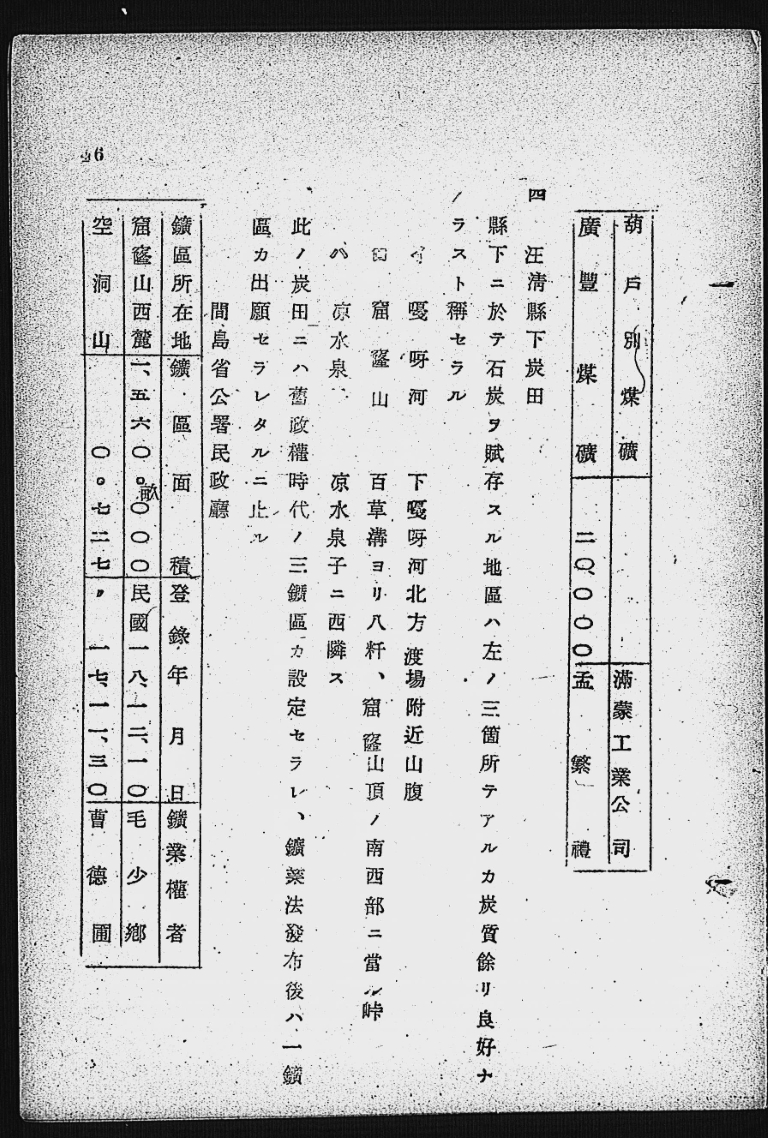 葫戸別煤礦 滿蒙工業公司
廣豐煤礦 二〇、〇〇〇 孟繁禮
四 汪淸縣下炭田
縣下ニ於テ石炭ヲ賦存スル地區ハ左ノ三箇所テアルカ炭質餘リ良好ナ
ラスト稱セラル
イ 嘎呀河 下嘎呀河北方渡場附近山腹
ロ 窟窿山 百草溝ヨリ八粁、窟窿山頂ノ南西部ニ當ル峠
ハ 凉水泉 凉水泉子ニ西隣ス
此ノ炭田ニハ舊政權時代ノ三鑛區カ設定セラレ、鑛業法發布後ハ一鑛
區カ出願セラレタルニ止ル
間島省公署民政廳
鑛區所在地 鑛區面積 登錄年月日 鑛業權者
窟窿山西麓 一、五六〇。〇〇〇畝 民國一八、一二、一〇 毛少鄕
空洞山 〇。七二七 〃 一七、一一、三〇 曹德圃